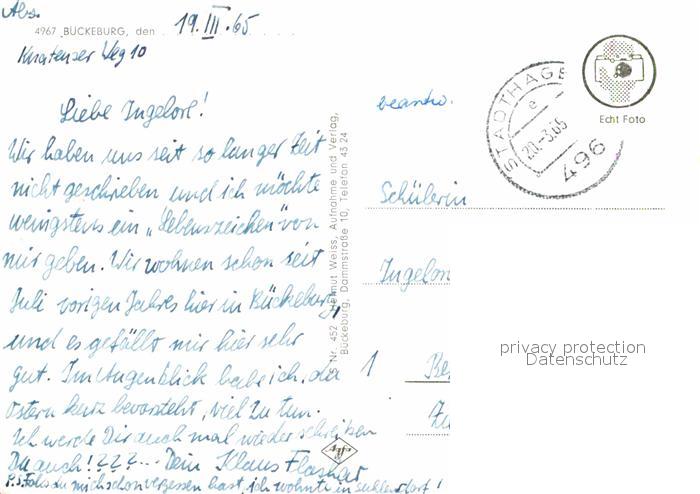 Abs.
4967 BÜCKEBURG, den 19. III. 65
Knatenser Weg 10
Liebe Ingelore!
Wir haben uns seit so langer Zeit
nicht geschrieben und ich möchte
wenigstens ein „Lebenszeichen" von
mir geben. Wir wohnen schon seit
Juli vorigen Jahres hier in Bückeburg,
und es gefällt mir hier sehr
gut. Im Augenblick habe ich, da
Ostern kurz bevorsteht, viel zu tun.
Ich werde Dir auch mal wieder schreiben
Du auch!???... Dein Klaus
P.S. Falls du mich schon vergessen hast, ich wohnte in !
Nr. 452 Helmut Weiss, Aufnahme und Verlag,
Bückeburg, Dammstraße 10, Telefon 43 24
beantw.
STADTHAGE
e
20.-3.65
496
Echt Foto
Schülerin
Ingelor
1
privacy protection
Datenschutz